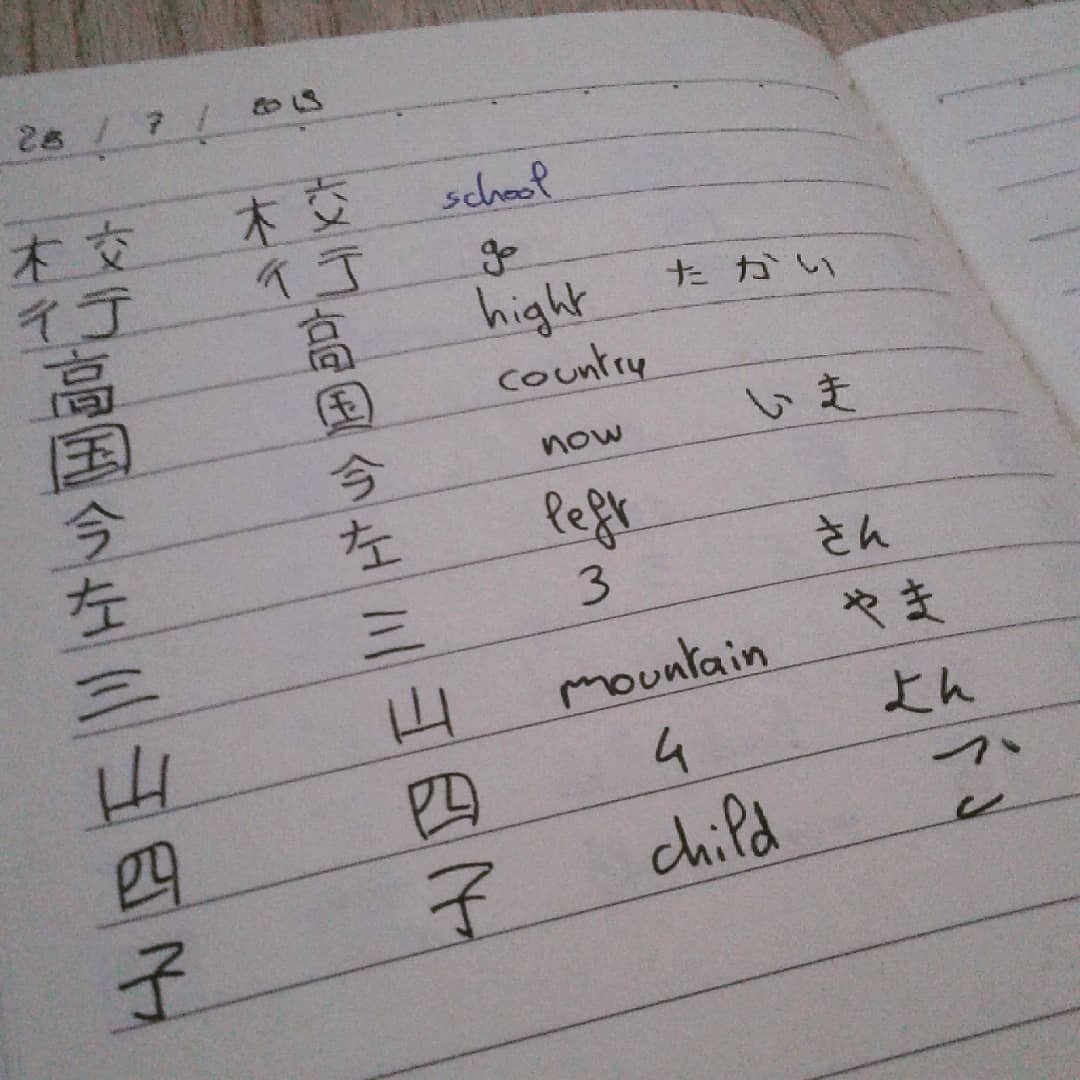 28 / 7 / 2019
校 校 school
行 行 go
高 高 hight たがい
国 国 country
今 今 now いま
左 左 left
三 三 3 さん
山 山 mountain やま
四 四 4 よん
子 子 child こ